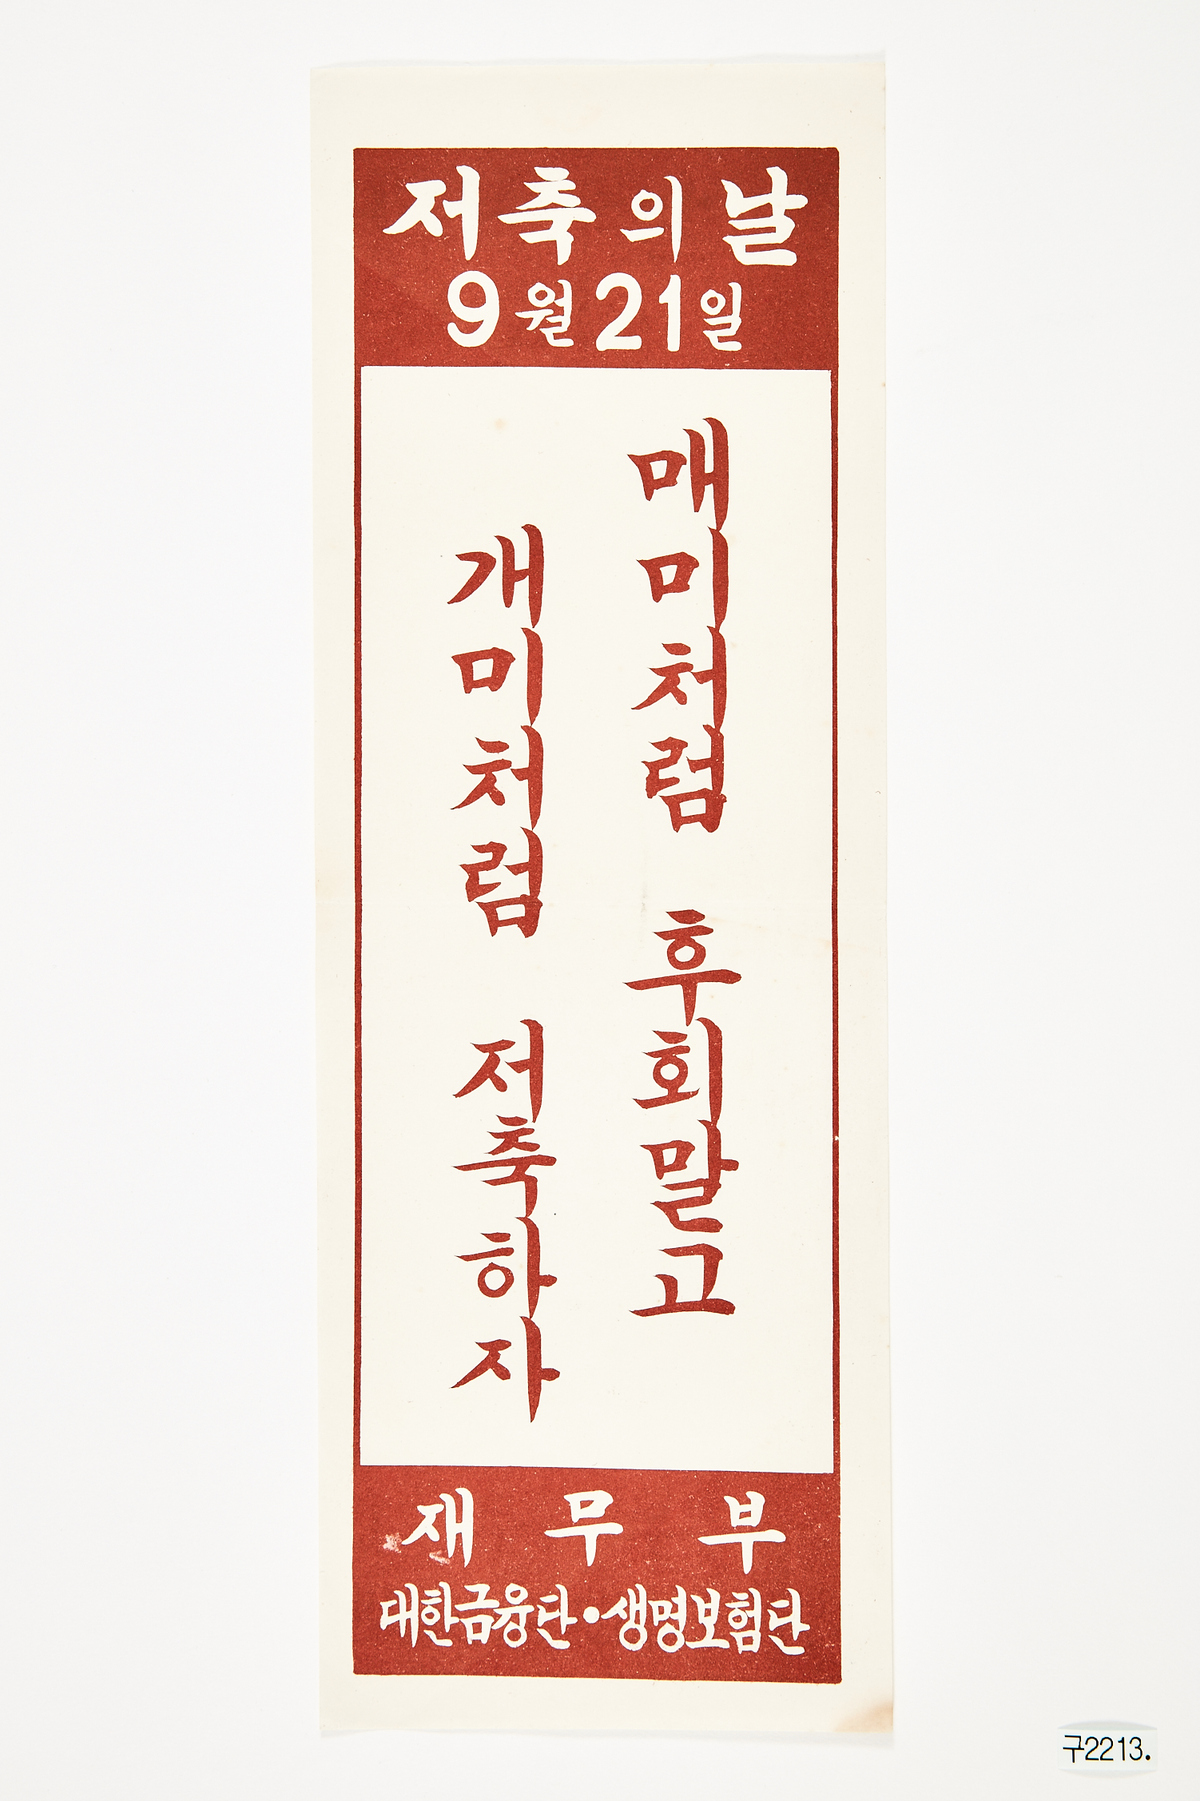 저축의날
9월21일
매미처럼 후회말고
개미처럼 저축하자
재무부
대한금융단•생명보험단
구2213.